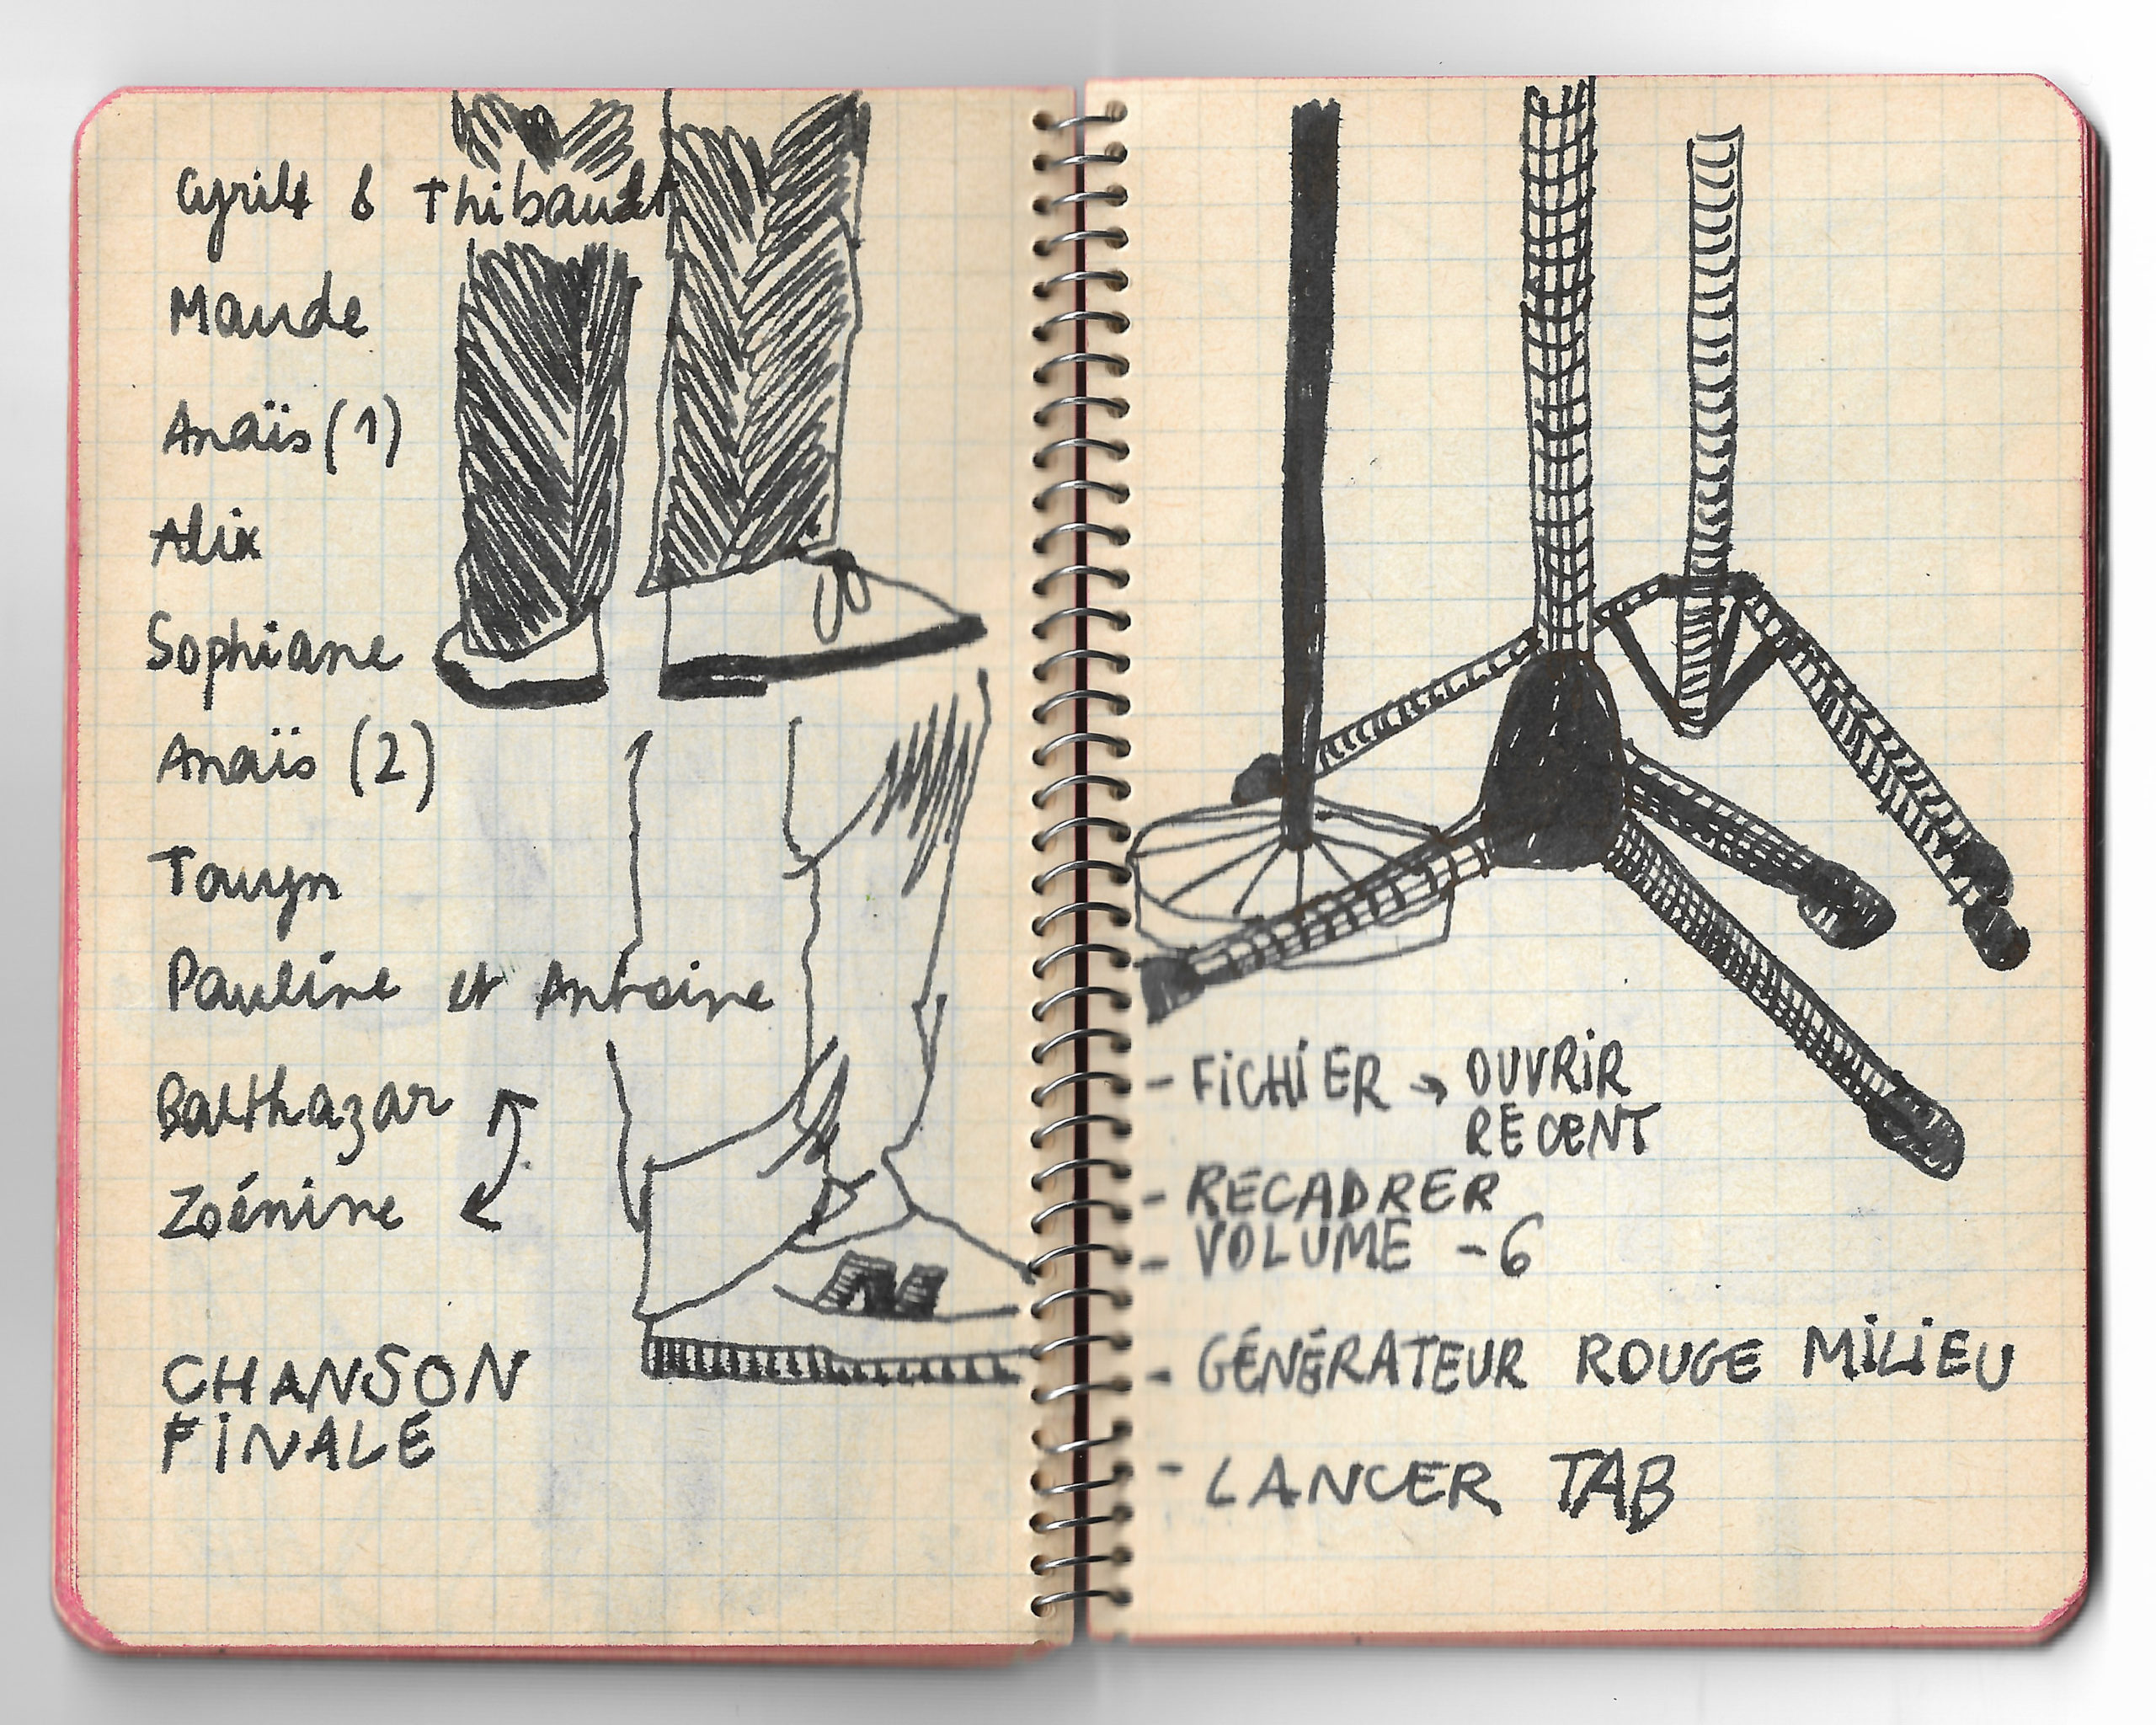 Cyril & Thibault
Maude
Anaïs (1)
Alix
Sophiane
Anaïs (2)
Pauline et Antoine
Balthazar
Zoénine
CHANSON
FINALE
- FICHIER → OUVRIR
RECENT
- RECADRER
- VOLUME -6
- GÉNÉRATEUR ROUGE MILIEU
- LANCER TAB